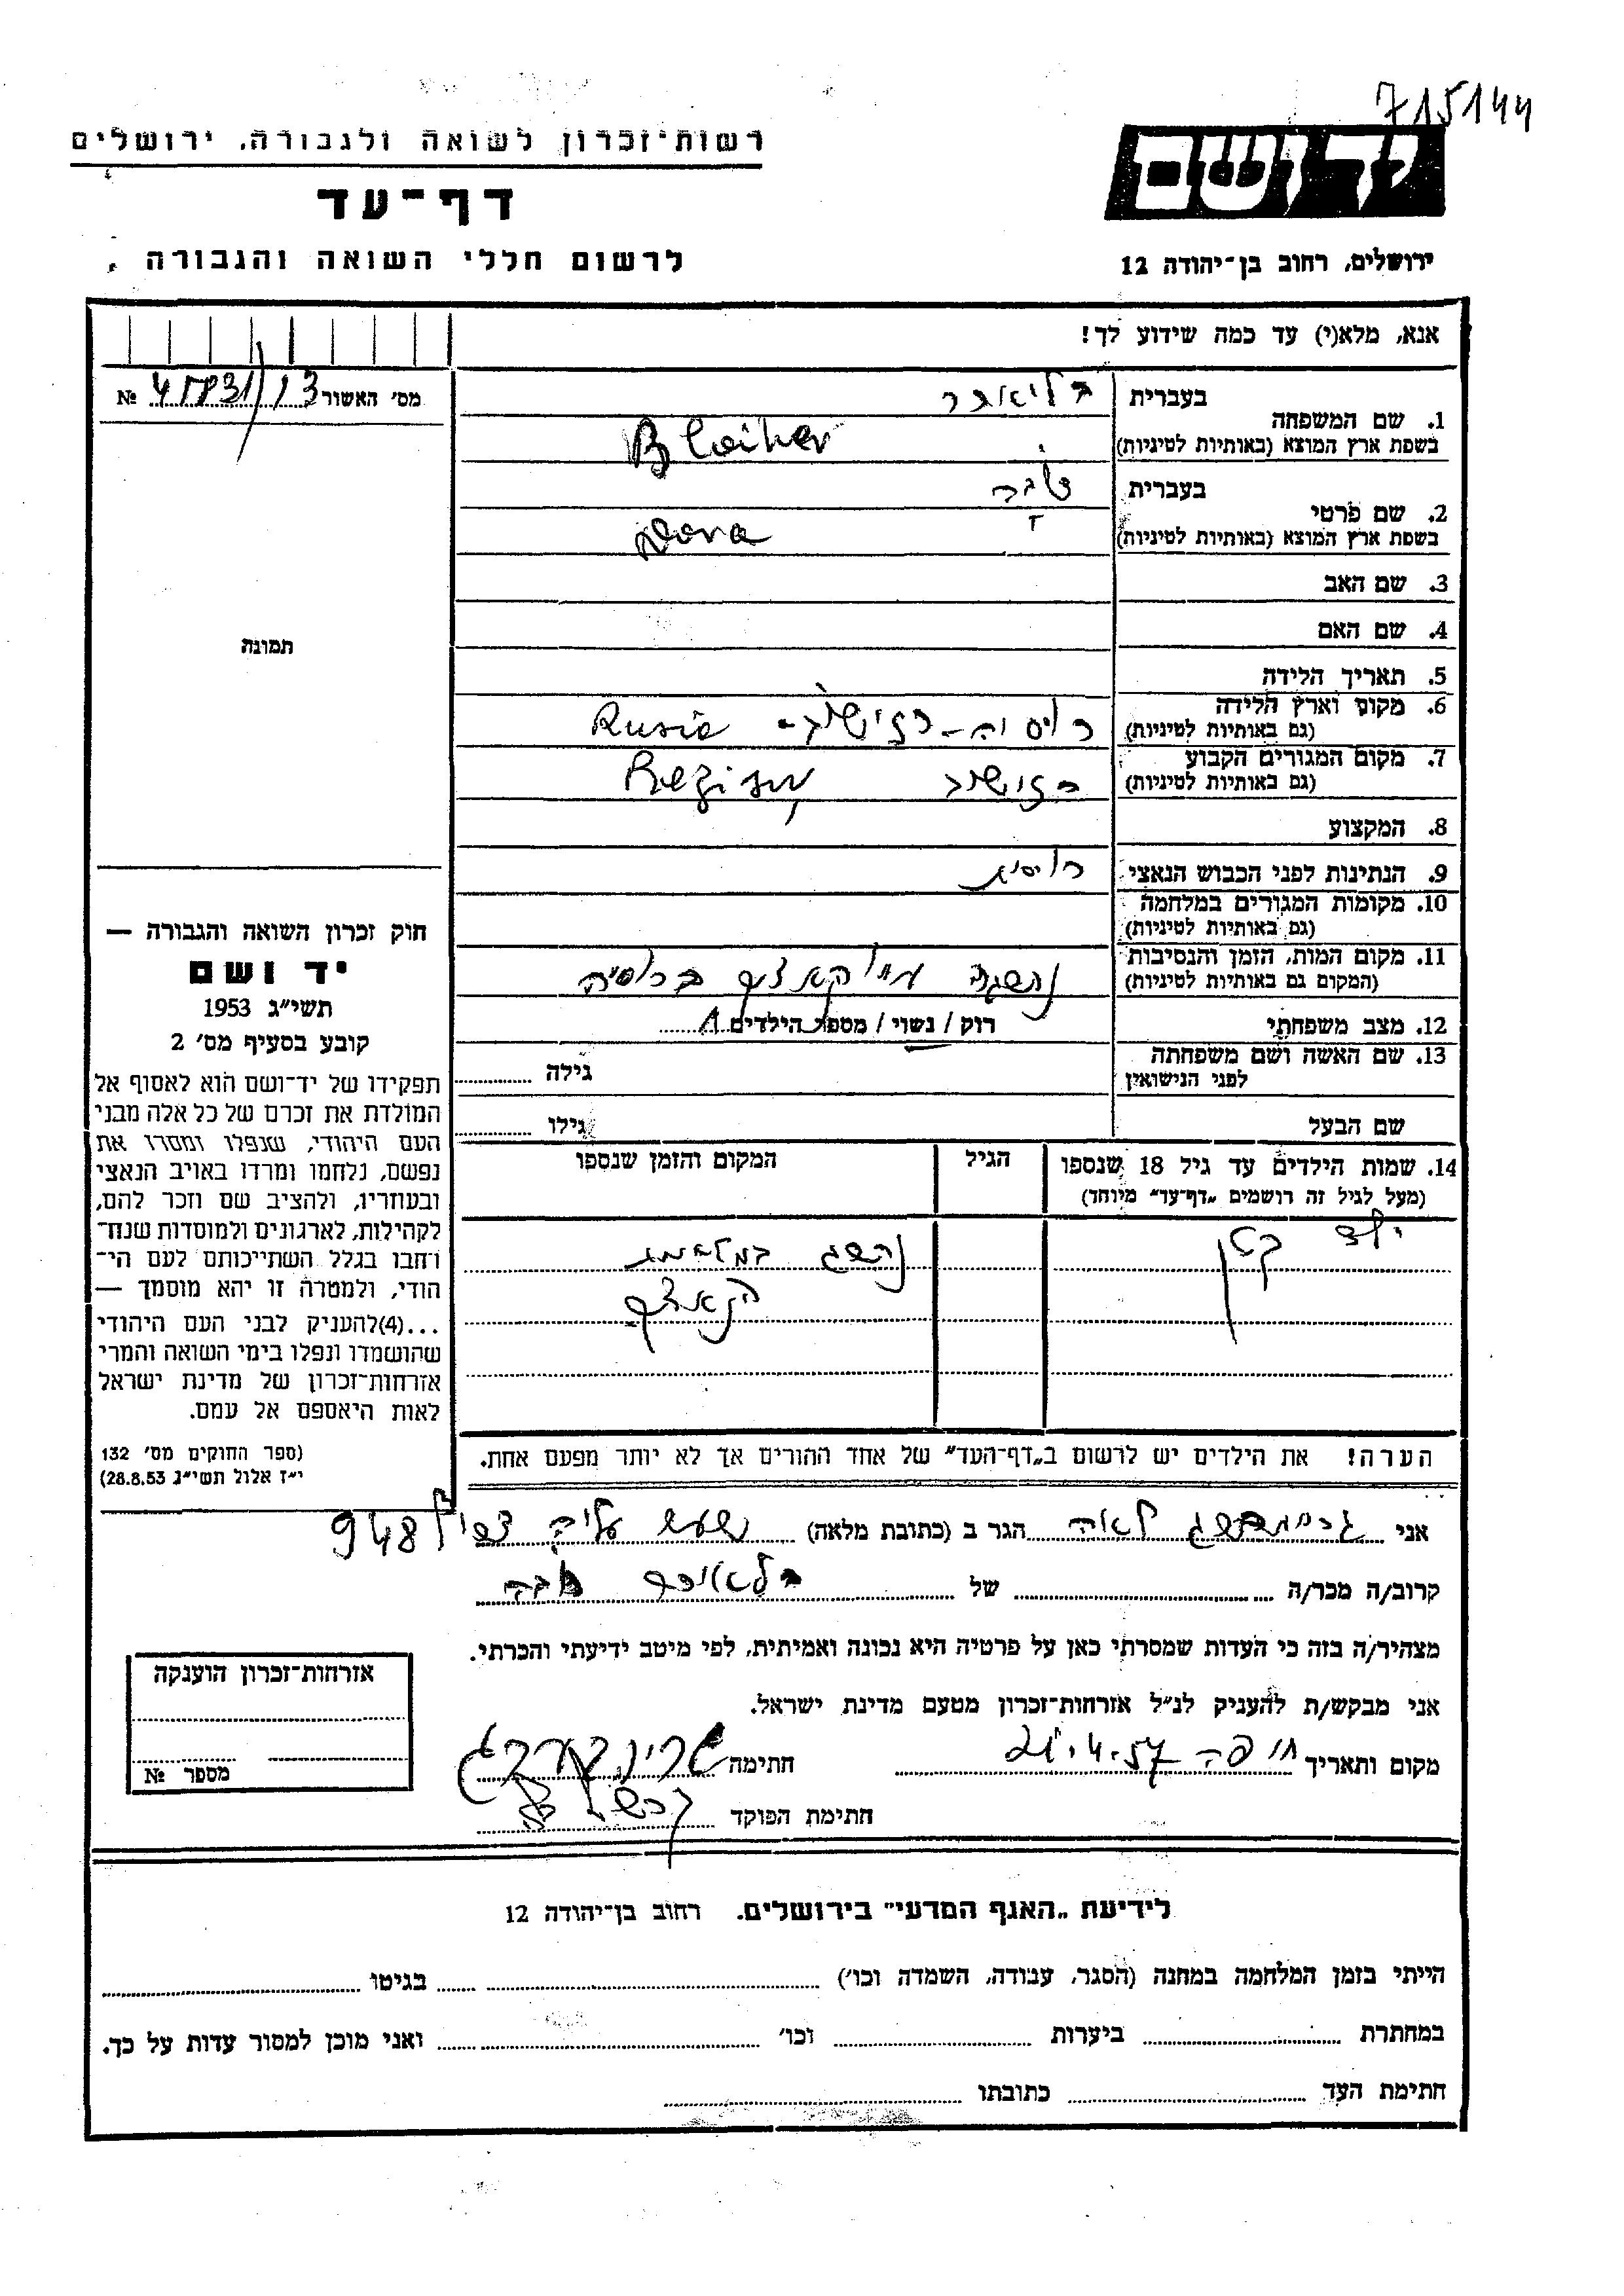 715144
רשות־זכרון לשואה ולגבורה, ירושלים
דף־עד
לרשום חללי השואה והגבורה
ירושלים, רחוב בן־יהודה 12
אנא, מלא(י) עד כמה שידוע לך!
מס׳ האשור №
1. שם המשפחה
בעברית
בשפת ארץ המוצא (באותיות לטיניות)
Blaiher
2. שם פרטי
בעברית
בשפת ארץ המוצא (באותיות לטיניות)
Dora
3. שם האב
4. שם האם
5. תאריך הלידה
6. מקום וארץ הלידה
(גם באותיות לטיניות)
רוסיה - רזישוב - Rusia
7. מקום המגורים הקבוע
(גם באותיות לטיניות)
רזישוב
8. המקצוע
9. הנתינות לפני הכבוש הנאצי
רוסית
10. מקומות המגורים במלחמה
(גם באותיות לטיניות)
11. מקום המות, הזמן והנסיבות
(המקום גם באותיות לטיניות)
ברוסיה
12. מצב משפחתי
רוק / נשוי / מספר הילדים 1
13. שם האשה ושם משפחתה
לפני הנישואין
גילה
שם הבעל
גילו
14. שמות הילדים עד גיל 18 שנספו
(מעל לגיל זה רושמים „דף־עד״ מיוחד)
הגיל
המקום והזמן שנספו
ילד קטן
תמונה
חוק זכרון השואה והגבורה —
יד ושם
תשי״ג 1953
קובע בסעיף מס׳ 2
תפקידו של יד־ושם הוא לאסוף אל
המולדת את זכרם של כל אלה מבני
העם היהודי, שנפלו ומסרו את
נפשם, נלחמו ומרדו באויב הנאצי
ובעוזריו, ולהציב שם וזכר להם,
לקהילות, לארגונים ולמוסדות שנח־
רחבו בגלל השתייכותם לעם הי־
הודי, ולמטרה זו יהא מוסמך —
...(4)להעניק לבני העם היהודי
שהושמדו ונפלו בימי השואה והמרי
אזרחות־זכרון של מדינת ישראל
לאות היאספם אל עמם.
(ספר החוקים מס׳ 132
י״ז אלול תשי״ג 28.8.53)
הערה! את הילדים יש לרשום ב„דף־העד״ של אחד ההורים אך לא יותר מפעם אחת.
אני לאה הגר ב (כתובת מלאה) שער עליה 948
קרוב/ה מכר/ה של
מצהיר/ה בזה כי העדות שמסרתי כאן על פרטיה היא נכונה ואמיתית, לפי מיטב ידיעתי והכרתי.
אני מבקש/ת להעניק לנ״ל אזרחות־זכרון מטעם מדינת ישראל.
מקום ותאריך חיפה 21.4.57 חתימה
חתימת הפוקד
אזרחות־זכרון הוענקה
מספר №
לידיעת „האגף המדעי״ בירושלים. רחוב בן־יהודה 12
הייתי בזמן המלחמה במחנה (הסגר, עבודה, השמדה וכו׳) בגיטו
במחתרת ביערות וכו׳ ואני מוכן למסור עדות על כך.
חתימת העד כתובתו